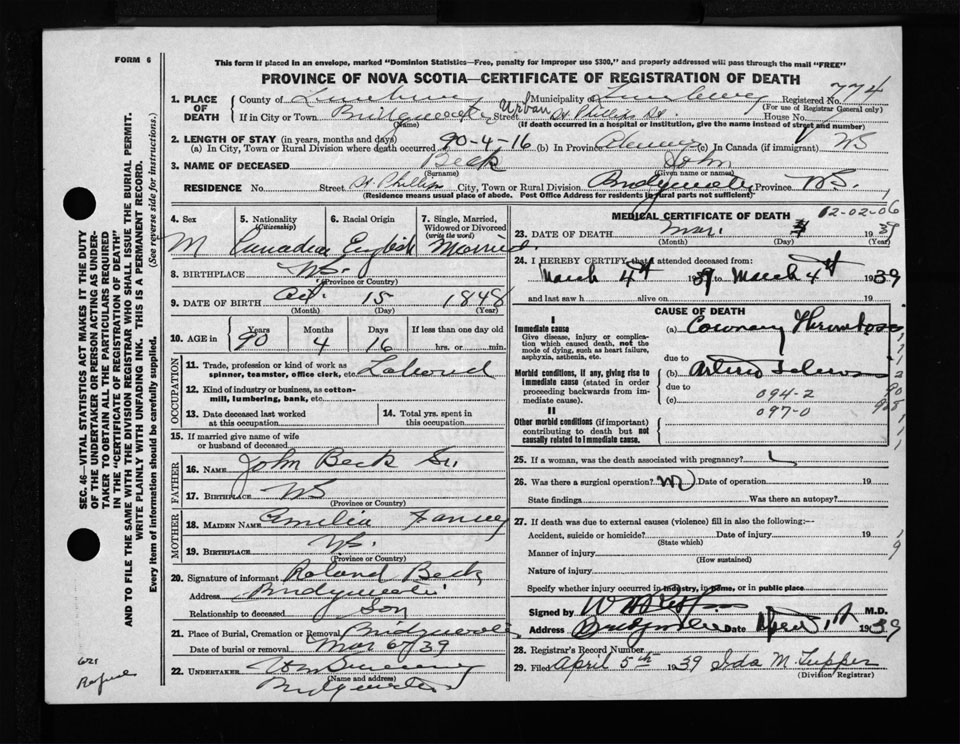 FORM 6
This form if placed in an envelope, marked "Dominion Statistics—Free, penalty for improper use $300," and properly addressed will pass through the mail "FREE"
PROVINCE OF NOVA SCOTIA—CERTIFICATE OF REGISTRATION OF DEATH
1. PLACE OF DEATH County of Lunenburg Municipality of Lunenburg Registered No. 774
(For use of Registrar General only)
If in City or Town Bridgewater Urban Street St Phillip St. House No.
(Name) (If death occurred in a hospital or institution, give the name instead of street and number)
2. LENGTH OF STAY (in years, months and days)
(a) In City, Town or Rural Division where death occurred 90-4-16 (b) In Province Always (c) In Canada (if immigrant) NS
3. NAME OF DECEASED Beck John
(Surname) (Given name or names)
RESIDENCE No. Street St. Phillip City, Town or Rural Division Bridgewater Province N.S.
(Residence means usual place of abode. Post Office Address for residents in rural parts not sufficient)
4. Sex M
5. Nationality (Citizenship) Canadian
6. Racial Origin English
7. Single, Married, Widowed or Divorced (write the word) Married
8. BIRTHPLACE N.S.
(Province or Country)
9. DATE OF BIRTH Oct. 15 1848
(Month) (Day) (Year)
10. AGE in Years 90 Months 4 Days 16 If less than one day old
hrs. or min.
OCCUPATION
11. Trade, profession or kind of work as spinner, teamster, office clerk, etc.
12. Kind of industry or business, as cotton-mill, lumbering, bank, etc.
13. Date deceased last worked at this occupation
14. Total yrs. spent in this occupation
15. If married give name of wife or husband of deceased
FATHER
16. NAME John Beck Sr.
17. BIRTHPLACE NS
(Province or Country)
MOTHER
18. MAIDEN NAME
19. BIRTHPLACE N.S.
(Province or Country)
20. Signature of informant Roland Beck
Address Bridgewater
Relationship to deceased Son
21. Place of Burial, Cremation or Removal Bridgewater
Date of burial or removal Mar 6/39
22. UNDERTAKER
(Name and address)
Bridgewater
MEDICAL CERTIFICATE OF DEATH
02-02-06
23. DATE OF DEATH Mar. 1939
(Month) (Day) (Year)
24. I HEREBY CERTIFY that I attended deceased from:
March 4th 1939 to March 4th 1939
and last saw h alive on 19
CAUSE OF DEATH
I
Immediate cause
Give disease, injury or complication which caused death, not the mode of dying, such as heart failure, asphyxia, asthenia, etc.
(a) Coronary Thrombosis
due to
Morbid conditions, if any, giving rise to immediate cause (stated in order proceeding backwards from immediate cause).
(b) Arterio Sclerosis
due to
094-2
(c)
097-0
II
Other morbid conditions (if important) contributing to death but not causally related to immediate cause.
25. If a woman, was the death associated with pregnancy?
26. Was there a surgical operation? no Date of operation 19
State findings Was there an autopsy?
27. If death was due to external causes (violence) fill in also the following:—
Accident, suicide or homicide? Date of injury 19
(State which)
Manner of injury
(How sustained)
Nature of injury
Specify whether injury occurred in industry, in home, or in public place
Signed by M.D.
Address Bridgewater Date 1939
28. Registrar's Record Number
29. Filed April 5th 1939 Ida M. Tupper
(Division Registrar)
SEC. 46—VITAL STATISTICS ACT MAKES IT THE DUTY
OF THE UNDERTAKER OR PERSON ACTING AS UNDERTAKER TO OBTAIN ALL THE PARTICULARS REQUIRED
IN THE "CERTIFICATE OF REGISTRATION OF DEATH"
AND TO FILE THE SAME WITH THE DIVISION REGISTRAR WHO SHALL ISSUE THE BURIAL PERMIT.
WRITE PLAINLY WITH UNFADING INK. THIS IS A PERMANENT RECORD.
Every item of information should be carefully supplied. (See reverse side for instructions.)